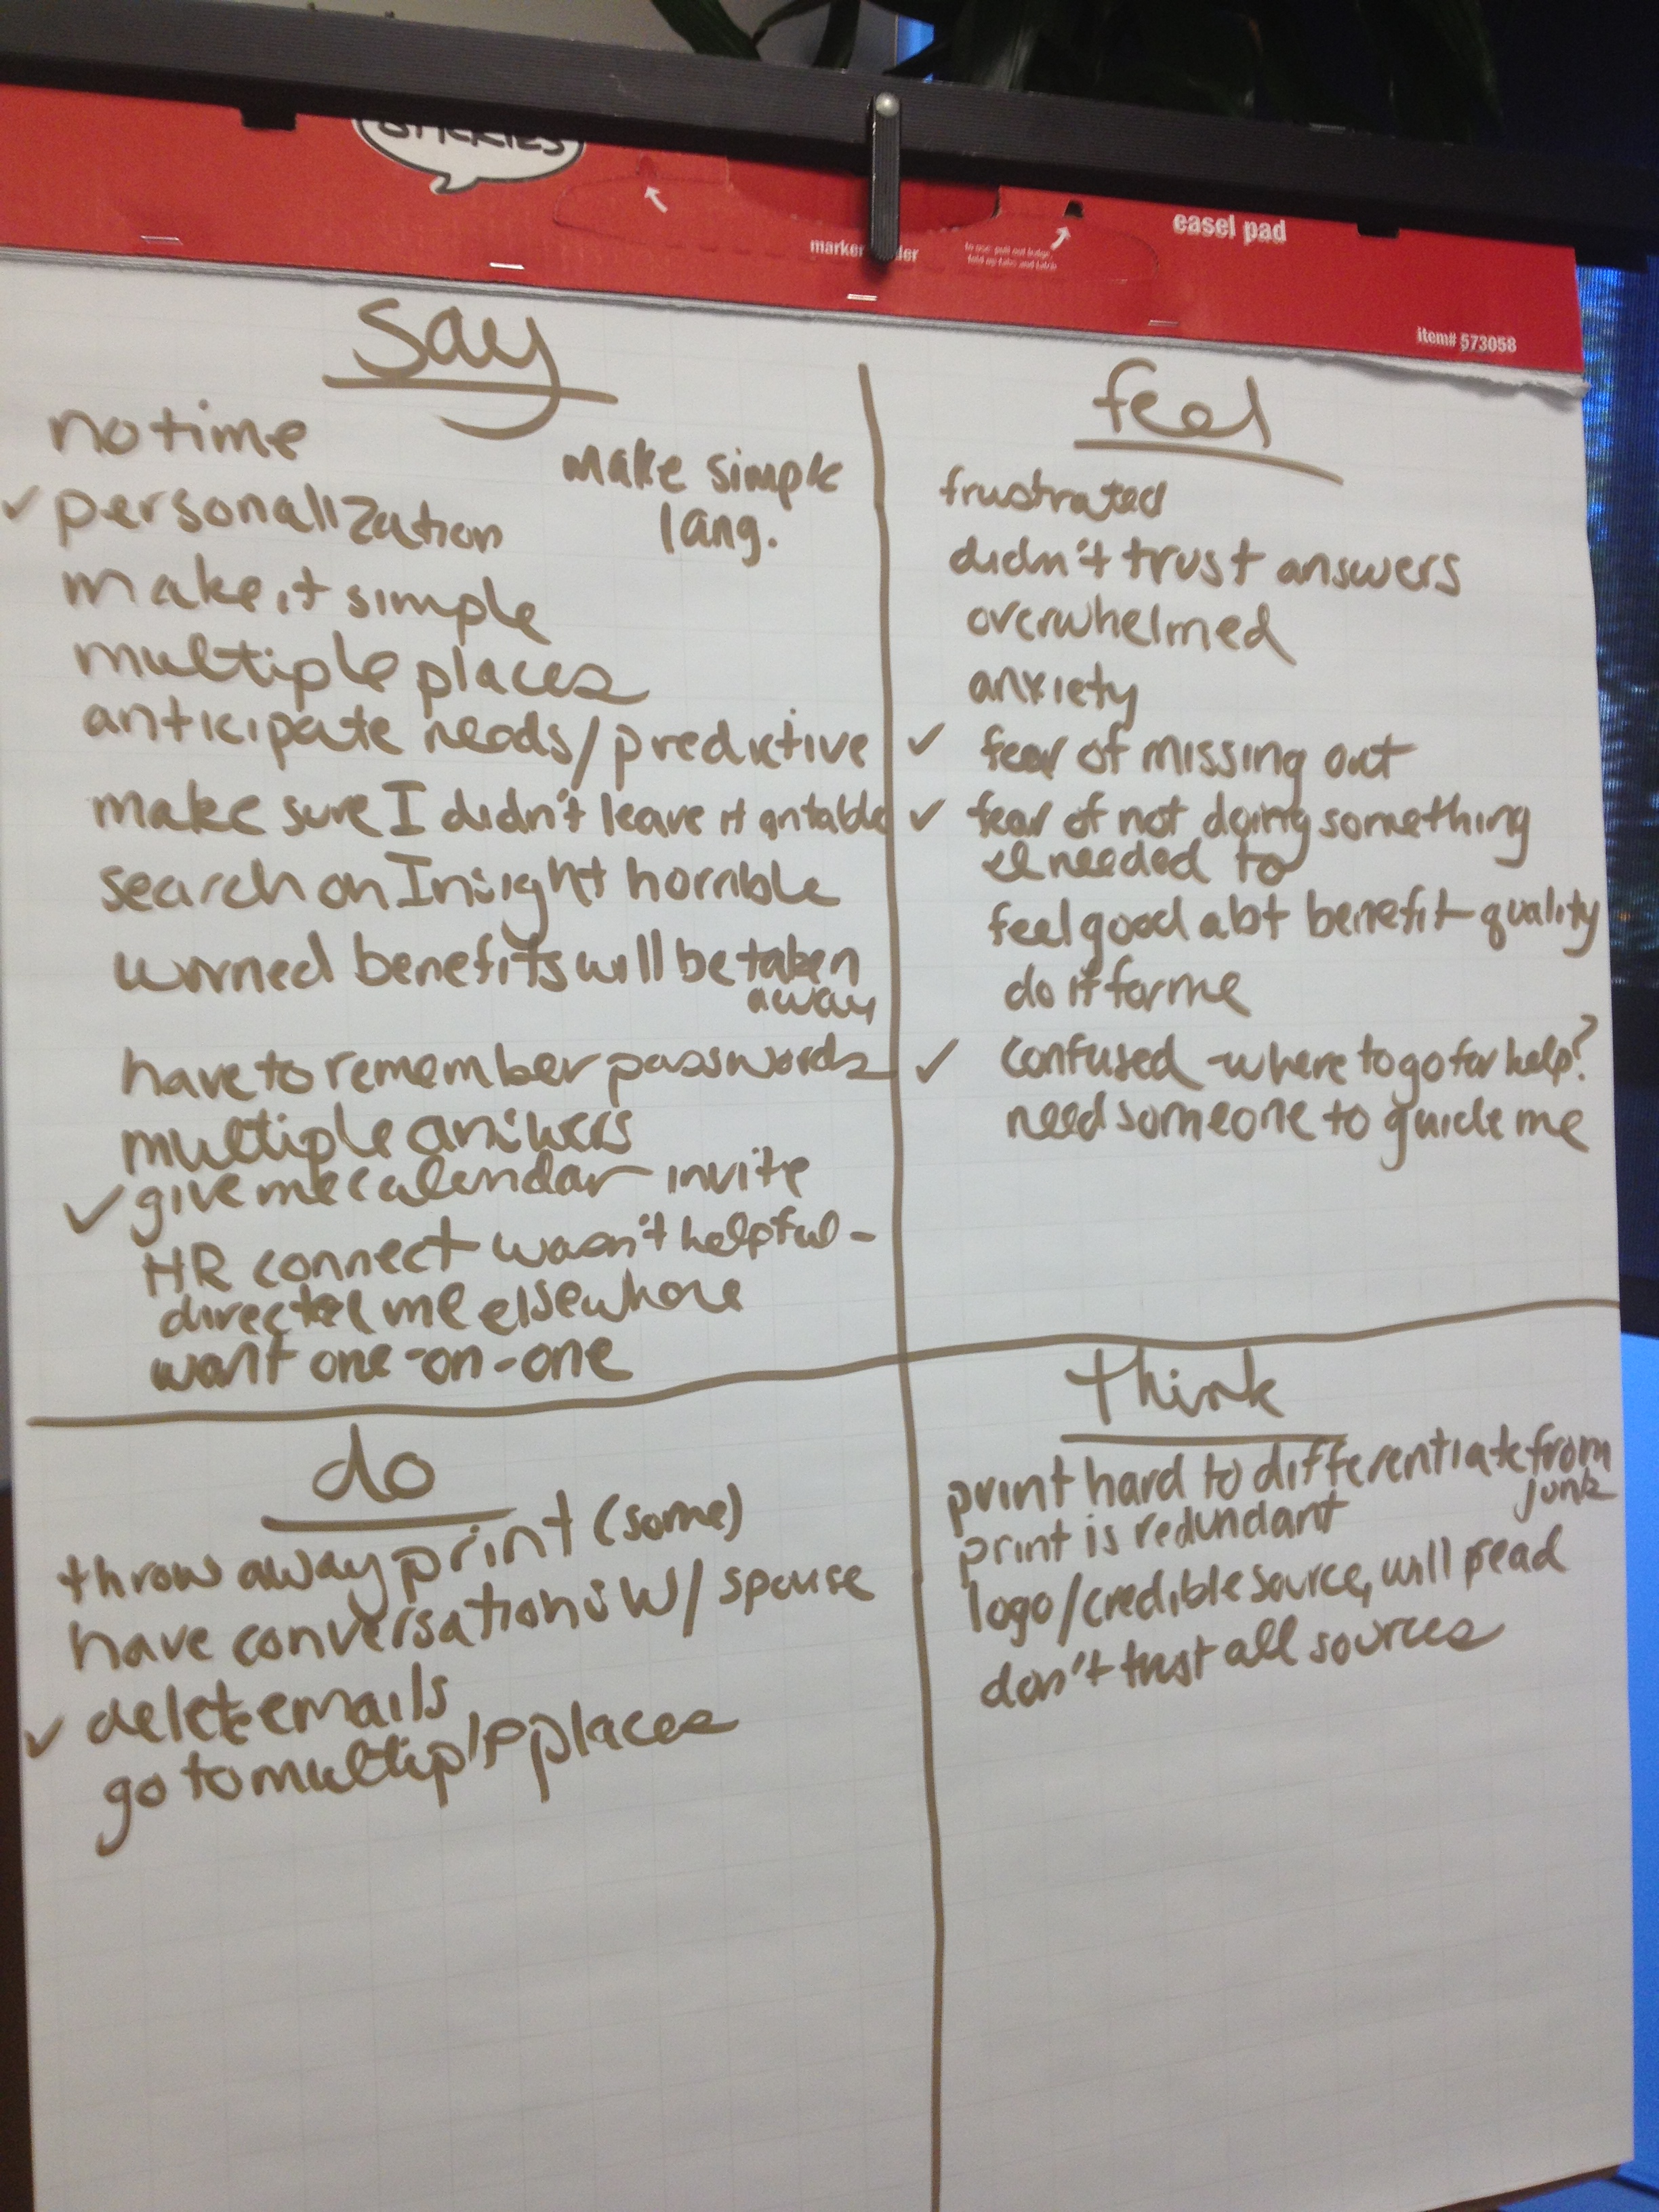 STICKIES
easel pad
item# 573058
say
no time
make simple
lang.
✓ personalization
make it simple
multiple places
anticipate needs/predictive
make sure I didn't leave it on table
search on Insight horrible
worried benefits will be taken
away
have to remember passwords
multiple answers
✓ give me calendar invite
HR connect wasn't helpful -
directed me elsewhere
want one-on-one
feel
frustrated
didn't trust answers
overwhelmed
anxiety
✓ fear of missing out
✓ fear of not doing something
I needed to
feel good abt benefit quality
do it for me
✓ confused - where to go for help?
need someone to guide me
do
throw away print (some)
have conversations w/ spouse
✓ delete emails
go to multiple places
think
print hard to differentiate from
junk
print is redundant
logo/credible source, will read
don't trust all sources